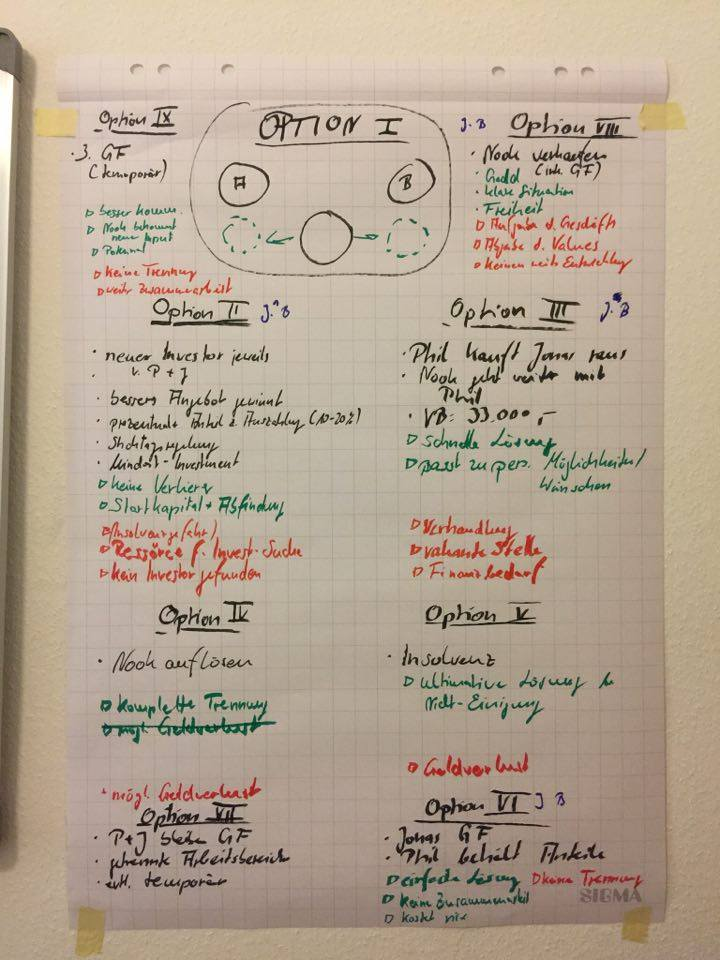 Option IX
· 3. GF
(temporär)
besser komm.
Nook bekommt
neue Input
Potenzial
keine Trennung
weiter Zusammenarbeit
OPTION I
A
B
J. B
Option VIII
· Nook verkaufen
· Geld (ink. GF)
· klare Situation
· Freiheit
Aufgabe d. Geschäfts
Abgabe d. Values
keinen Entwicklung
Option II
J. B
· neuer Investor jeweils
v. P + J
· bessers Angebot gewinnt
· Anteil Auszahlung (10-20%)
· Stichtagsregelung
· Mindest-Investment
keine Verlierer
Startkapital + Abfindung
(Insolvenzgefahr)
f. Invest-Suche
kein Investor gefunden
Option III
J. B
· Phil kauft Jonas raus
· Nook geht weiter mit
Phil
· VB: 33.000,-
schnelle Lösung
passt zu pers. Möglichkeiten/
Wünschen
Verhandlung
vakante Stelle
Finanzbedarf
Option IV
· Nook auflösen
komplette Trennung
mögl. Geldverlust
+ mögl. Geldverlust
Option V
· Insolvenz
ultimative Lösung
Nicht-Einigung
Geldverlust
Option VII
· P + J bleibe GF
· getrennte Arbeitsbereiche
· evtl. temporär
Option VI
J B
· Jonas GF
· Phil behält Anteile
einfache Lösung
keine Trennung
keine Zusammenarbeit
kostet nix
SIGMA